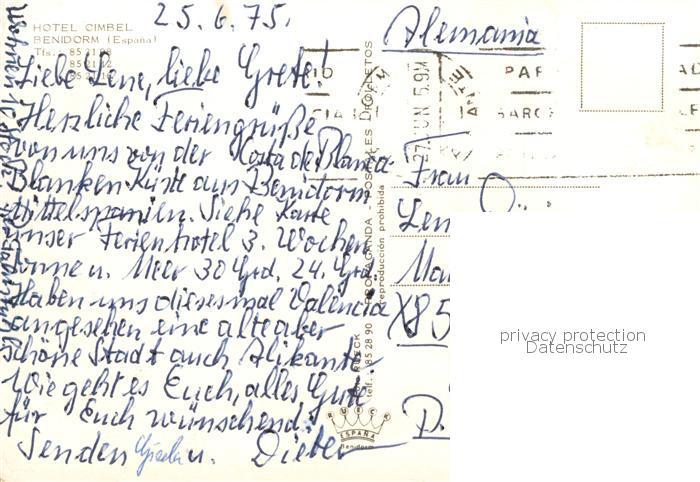 HOTEL CIMBEL
BENIDORM (España)
Tfs.: 85 21 08
25.6.75.
Liebe Lene, liebe Grete!
Herzliche Feriengrüße
von uns von der Kosta de Blanca
Blanken Küste aus Benidorm
Mittelspanien. Siehe Karte
unser Ferienhotel 3. Wochen
Sonne u. Meer 30 Grd. 24. Grd.
Haben uns dieses mal Valencia
angesehen eine alte aber
schöne Stadt auch Alikante
Wie geht es Euch, alles Gute
für Euch wünschend.
Senden Gisela u. Dieter
Wohnen
PROPAGANDA - POSTALES DROPLETOS
reproducción prohibida
RUECK
telf.: 85 28 90
RUECK
ESPAÑA
Benidorm
Alemania
27 JUN 5.9M
PAR
BARC
Frau
Len
X85
D.
privacy protection
Datenschutz